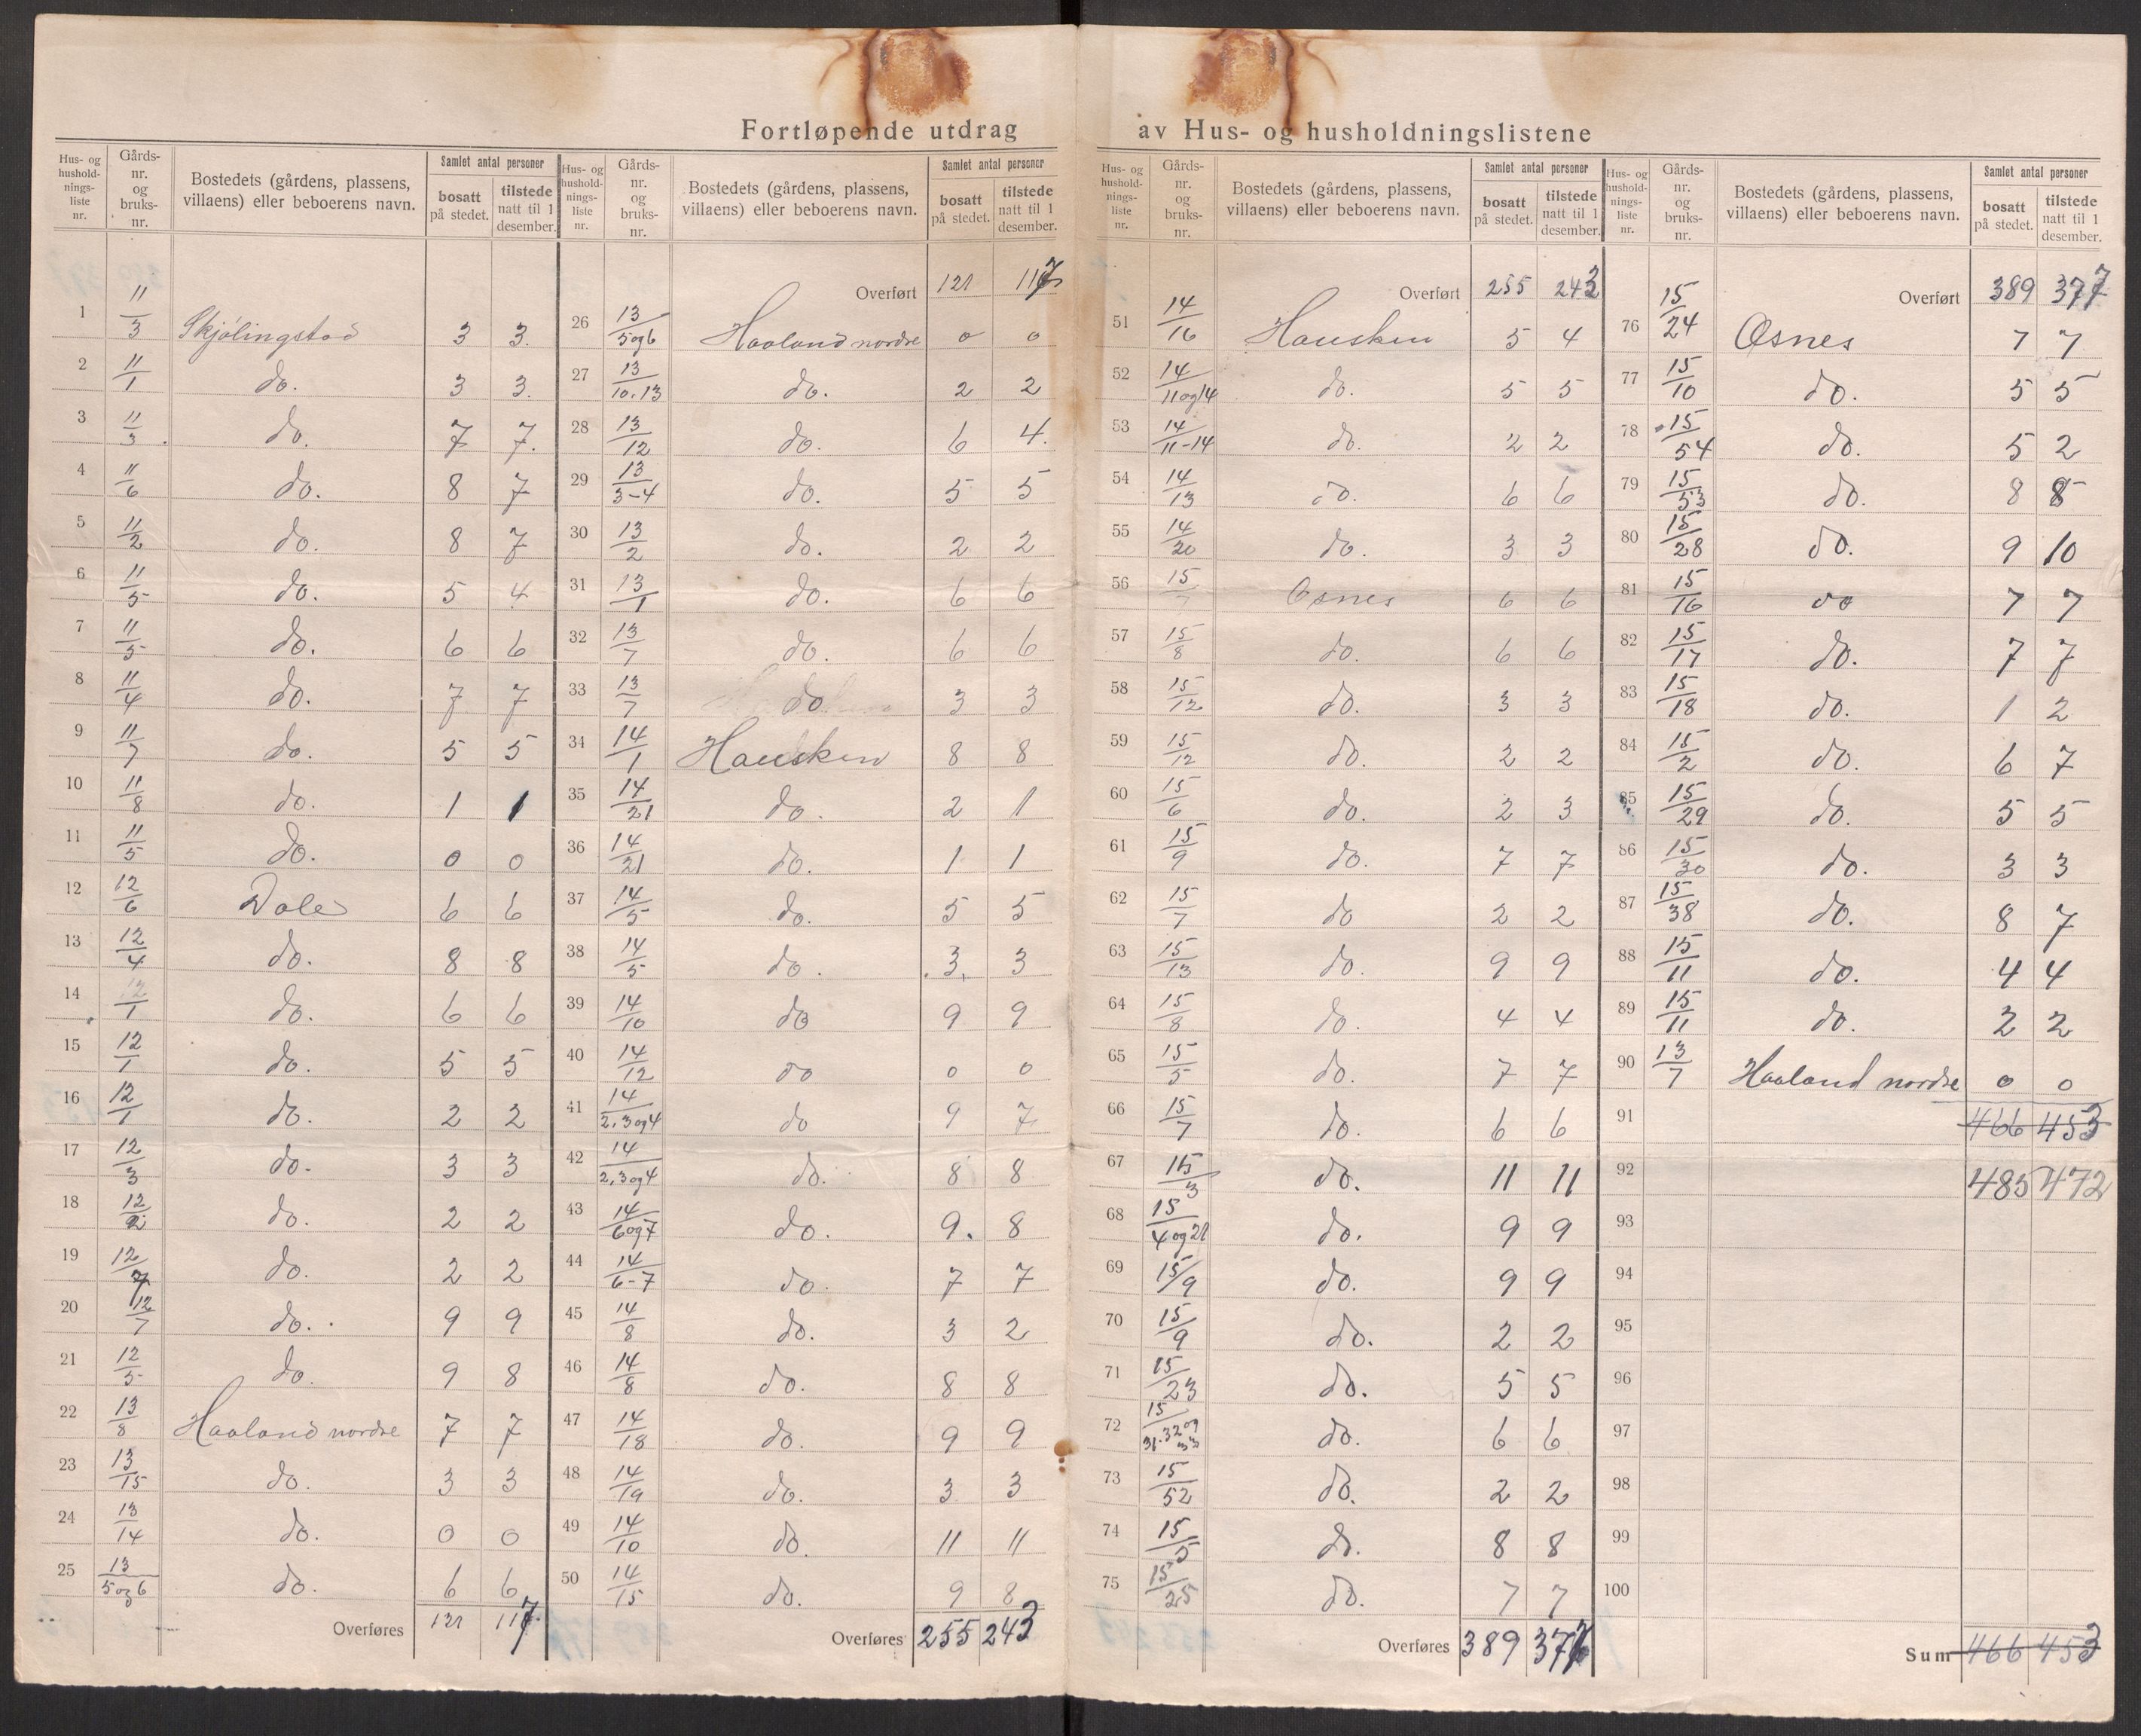 Fortløpende utdrag av Hus- og husholdningslistene
Hus- og husholdningsliste nr. | Gårds-nr. og bruks-nr. | Bostedets (gårdens, plassens, villaens) eller beboerens navn. | Samlet antal personer | bosatt på stedet. | tilstede natt til 1 desember.
1 11/3 Skjølingstad 3 3.
2 11/1 do. 3 3.
3 11/3 do. 7 7.
4 11/6 do. 8 7
5 11/2 do. 8 7
6 11/5 do. 5 4
7 11/5 do. 6 6
8 11/4 do. 7 7
9 11/7 do. 5 5
10 11/8 do. 1 1
11 11/5 do. 0 0
12 12/6 Dale 6 6
13 12/4 do. 8 8
14 12/1 do. 6 6
15 12/1 do. 5 5
16 12/1 do. 2 2
17 12/3 do. 3 3
18 12/2 do. 2 2
19 12/7 do. 2 2
20 12/7 do. 9 9
21 12/5 do. 9 8
22 13/8 Haaland nordre 7 7
23 13/15 do. 3 3
24 13/14 do. 0 0
25 13/5og6 do. 6 6
Overføres 121 117
Hus- og husholdningsliste nr. | Gårds-nr. og bruks-nr. | Bostedets (gårdens, plassens, villaens) eller beboerens navn. | Samlet antal personer | bosatt på stedet. | tilstede natt til 1 desember.
Overført 121 117
26 13/5og6 Haaland nordre 0 0
27 13/10.13 do. 2 2
28 13/12 do. 6 4.
29 13/3-4 do. 5 5
30 13/2 do. 2 2
31 13/1 do. 6 6
32 13/7 do. 6 6
33 13/7 do 3 3
34 14/1 Hausken 8 8
35 14/21 do. 2 1
36 14/21 do. 1 1
37 14/5 do. 5 5
38 14/5 do. 3. 3
39 14/10 do 9 9
40 14/12 do 0 0
41 14/2,3og4 do 9 7
42 14/2,3og4 do. 8 8
43 14/6og7 do. 9. 8
44 14/6-7 do. 7 7
45 14/8 do. 3 2
46 14/8 do. 8 8
47 14/18 do. 9 9
48 14/19 do. 3 3
49 14/10 do. 11 11
50 14/15 do. 9 8
Overføres 255 243
Hus- og husholdningsliste nr. | Gårds-nr. og bruks-nr. | Bostedets (gårdens, plassens, villaens) eller beboerens navn. | Samlet antal personer | bosatt på stedet. | tilstede natt til 1 desember.
Overført 255 243
51 14/16 Hausken 5 4
52 14/11og14 do. 5 5
53 14/11-14 do. 2 2
54 14/13 do. 6 6
55 14/20 do. 3 3
56 15/7 Osnes 6 6
57 15/8 do. 6 6
58 15/12 do. 3 3
59 15/12 do. 2 2
60 15/6 do. 2 3
61 15/9 do. 7 7
62 15/7 do 2 2
63 15/13 do. 9 9
64 15/8 do. 4 4
65 15/5 do. 7 7
66 15/7 do. 6 6
67 15/3 do. 11 11
68 15/4og21 do. 9 9
69 15/9 do. 9 9
70 15/9 do. 2 2
71 15/23 do. 5 5
72 15/31.32og33 do. 6 6
73 15/52 do. 2 2
74 15/5 do. 8 8
75 15/25 do. 7 7
Overføres 389 377
Hus- og husholdningsliste nr. | Gårds-nr. og bruks-nr. | Bostedets (gårdens, plassens, villaens) eller beboerens navn. | Samlet antal personer | bosatt på stedet. | tilstede natt til 1 desember.
Overført 389 377
76 15/24 Osnes 7 7
77 15/10 do. 5 5
78 15/54 do. 5 2
79 15/53 do. 8 8
80 15/28 do. 9 10
81 15/16 do 7 7
82 15/17 do. 7 7
83 15/18 do. 1 2
84 15/2 do. 6 7
85 15/29 do. 5 5
86 15/30 do. 3 3
87 15/38 do. 8 7
88 15/11 do. 4 4
89 15/11 do. 2 2
90 13/7 Haaland nordre 0 0
91 466 453
92 485 472
93
94
95
96
97
98
99
100
Sum 466 453